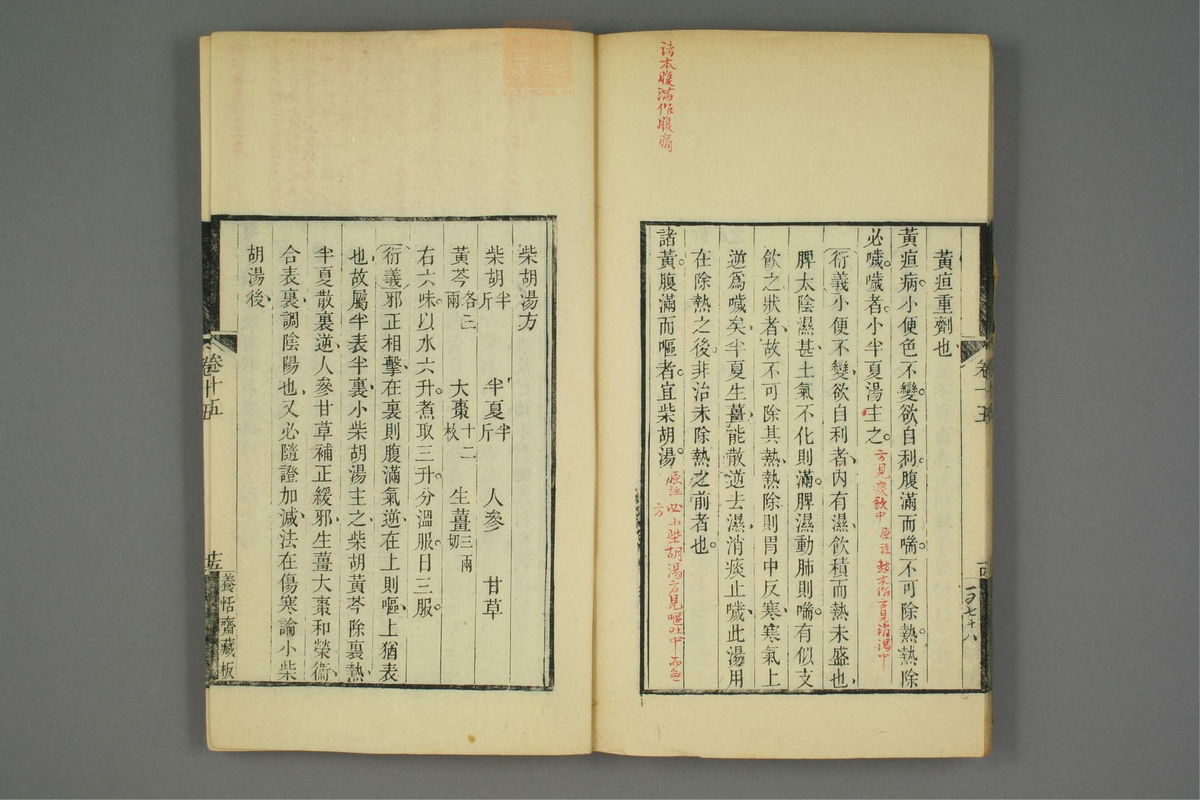 諸本腹滿作腹痛
卷十五
黃疸重劑也
黃疸病小便色不變欲自利腹滿而喘不可除熱熱除
必噦噦者小半夏湯主之
方見痰飲中 原註
衍義小便不變欲自利者內有濕飲積而熱未盛也
脾太陰濕甚土氣不化則滿脾濕動肺則喘有似支
飲之狀者故不可除其熱熱除則胃中反寒寒氣上
逆爲噦矣半夏生薑能散逆去濕消痰止噦此湯用
在除熱之後非治未除熱之前者也
諸黃腹滿而嘔者宜柴胡湯
原註 必小柴胡湯方見嘔吐中
柴胡湯方
柴胡半斤 半夏半斤 人參 甘草
黃芩各三兩 大棗十二枚 生薑三兩切
右六味以水六升煮取三升分溫服日三服
衍義邪正相擊在裏則腹滿氣逆在上則嘔上猶表
也故屬半表半裏小柴胡湯主之柴胡黃芩除裏熱
半夏散裏逆人參甘草補正緩邪生薑大棗和榮衞
合表裏調陰陽也又必隨證加減法在傷寒論小柴
胡湯後
卷十五
養恬齋藏板